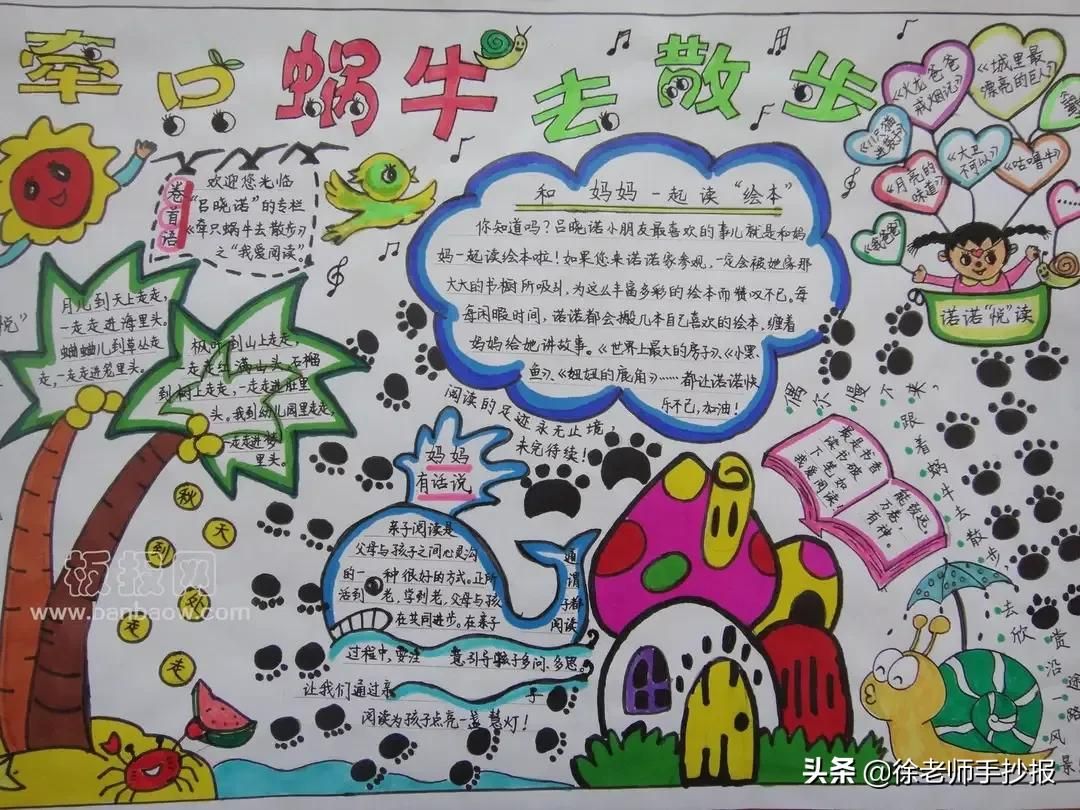 牵只蜗牛去散步
卷首语
欢迎您光临
“吕晓诺”的专栏
《牵只蜗牛去散步》
之“我爱阅读”。
和妈妈一起读“绘本”
你知道吗？吕晓诺小朋友最喜欢的事儿就是和妈
妈一起读绘本啦！如果您来诺诺家参观，一定会被她家那
大大的书橱所吸引，为这么丰富多彩的绘本而赞叹不已。每
每闲暇时间，诺诺都会搬几本自己喜欢的绘本，缠着
妈妈给她讲故事。《世界上最大的房子》、《小黑
鱼》、《妞妞的鹿角》……都让诺诺快
乐不已，加油！
阅读的足迹永无止境，
未完待续！
《火龙爸爸
戒烟记》
《城里最
漂亮的巨人》
《月亮的
味道》
《大卫
不可以》
《咕噜牛》
《我爸爸》
诺诺“悦”读
悦”
月儿到天上走走，
一走走进海里头。
蛐蛐儿到草丛走
走，一走走进笼里头。
枫叶到山上走走，
一走走红满山头。石榴
到树上走走，一走走进肚里
头。我到幼儿园里走走，
一走走进梦
里头。
秋天到处走走
妈妈
有话说
亲子阅读是
父母与孩子之间心灵沟通
的一种很好的方式。正所谓
活到老，学到老，父母与孩子都
在共同进步。在亲子阅读
过程中，要注意引导孩子多问、多思。
让我们通过亲子
阅读为孩子点亮一盏慧灯！
最是书香能致远
读书破万卷
下笔如有神。
我爱阅读、
偶尔慢下来，
跟着蜗牛去散步，
去欣赏沿一途路风景
板报网
www.banbaow.com
头条 @徐老师手抄报